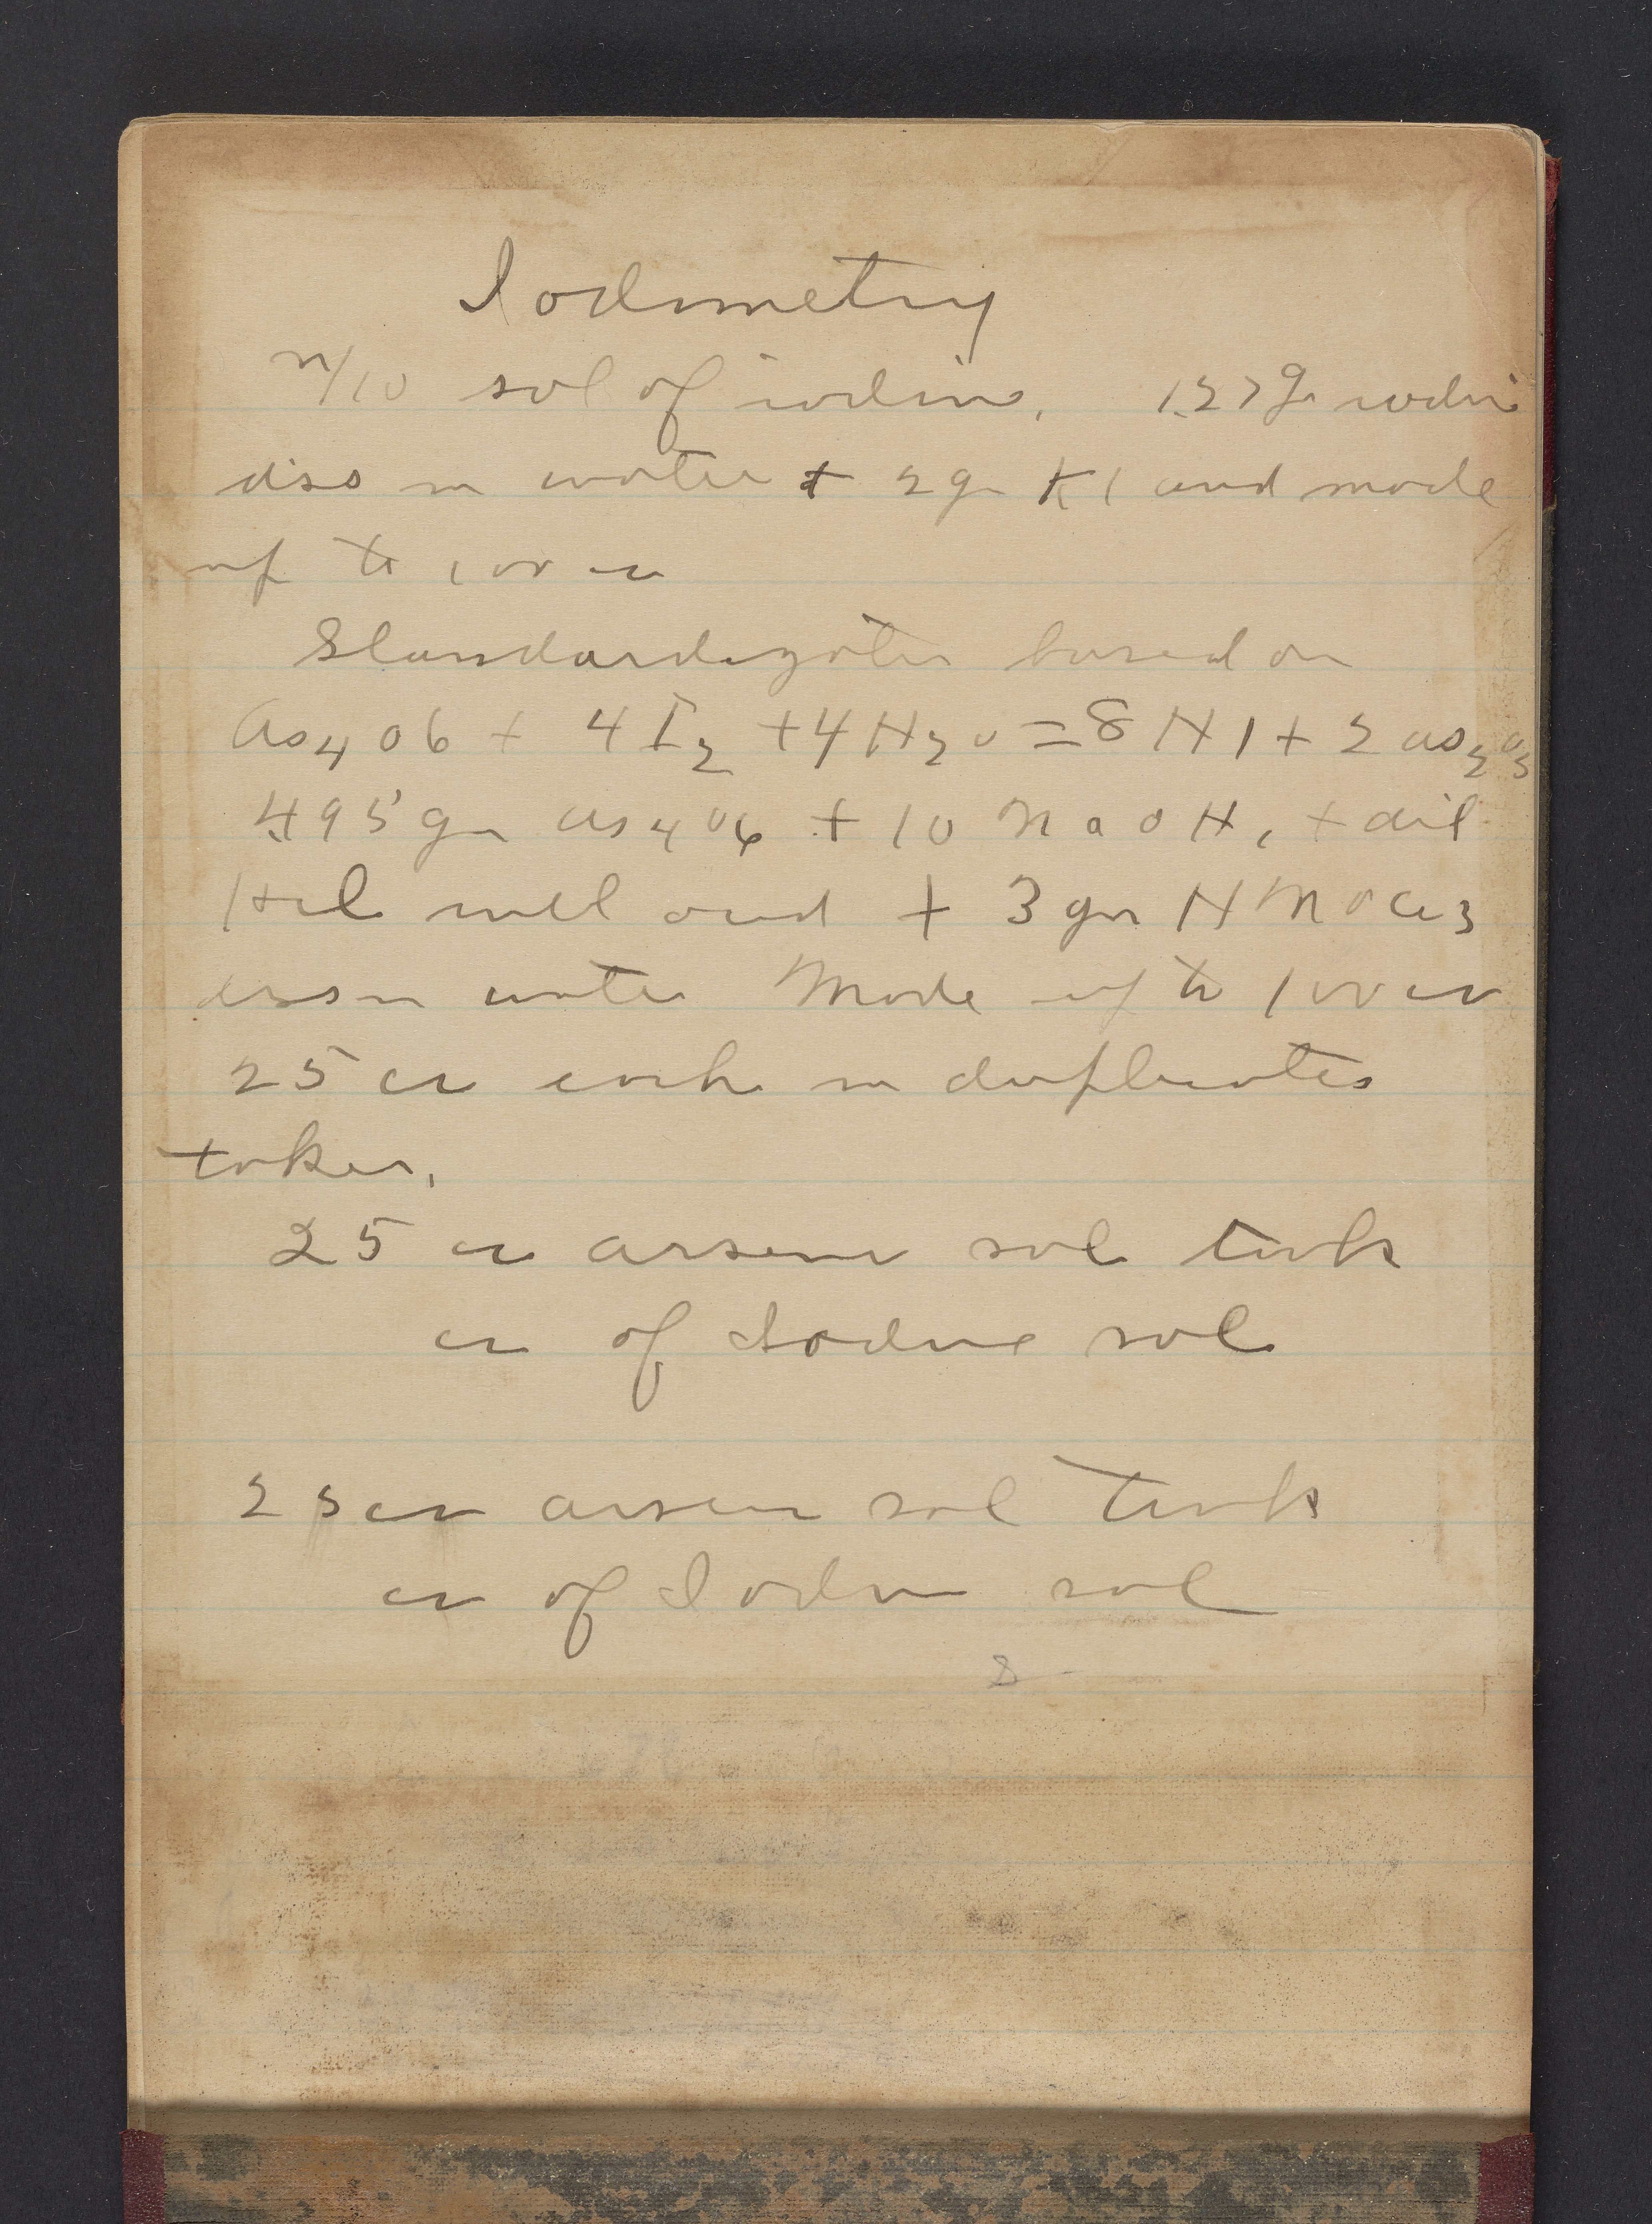 Iodimetry
n/10 sol of iodine. 1.27 g iodine
diss in water + 2 gm KI and made
up to 100 cc
Standardization based on
As4O6 + 4I2 + 4H2O = 8HI + 2As2O5
.495 gm As4O6 + 10 NaOH, + dil
HCl until acid + 3 gm HNaCO3
diss in water Made up to 100 cc
25 cc each in duplicates
taken.
25 cc arsenic sol took
cc of Iodine sol
25 cc arsenic sol took
cc of Iodine sol